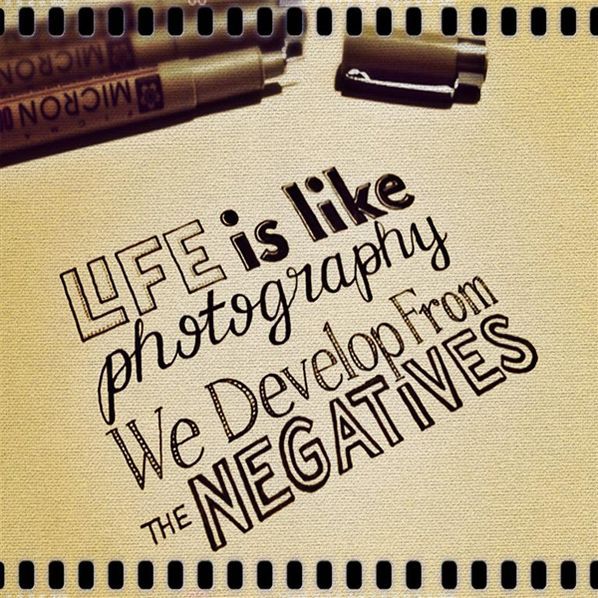 MICRON
MICRON 00
LiFE is like
photography
We Develop From
THE NEGATiVES